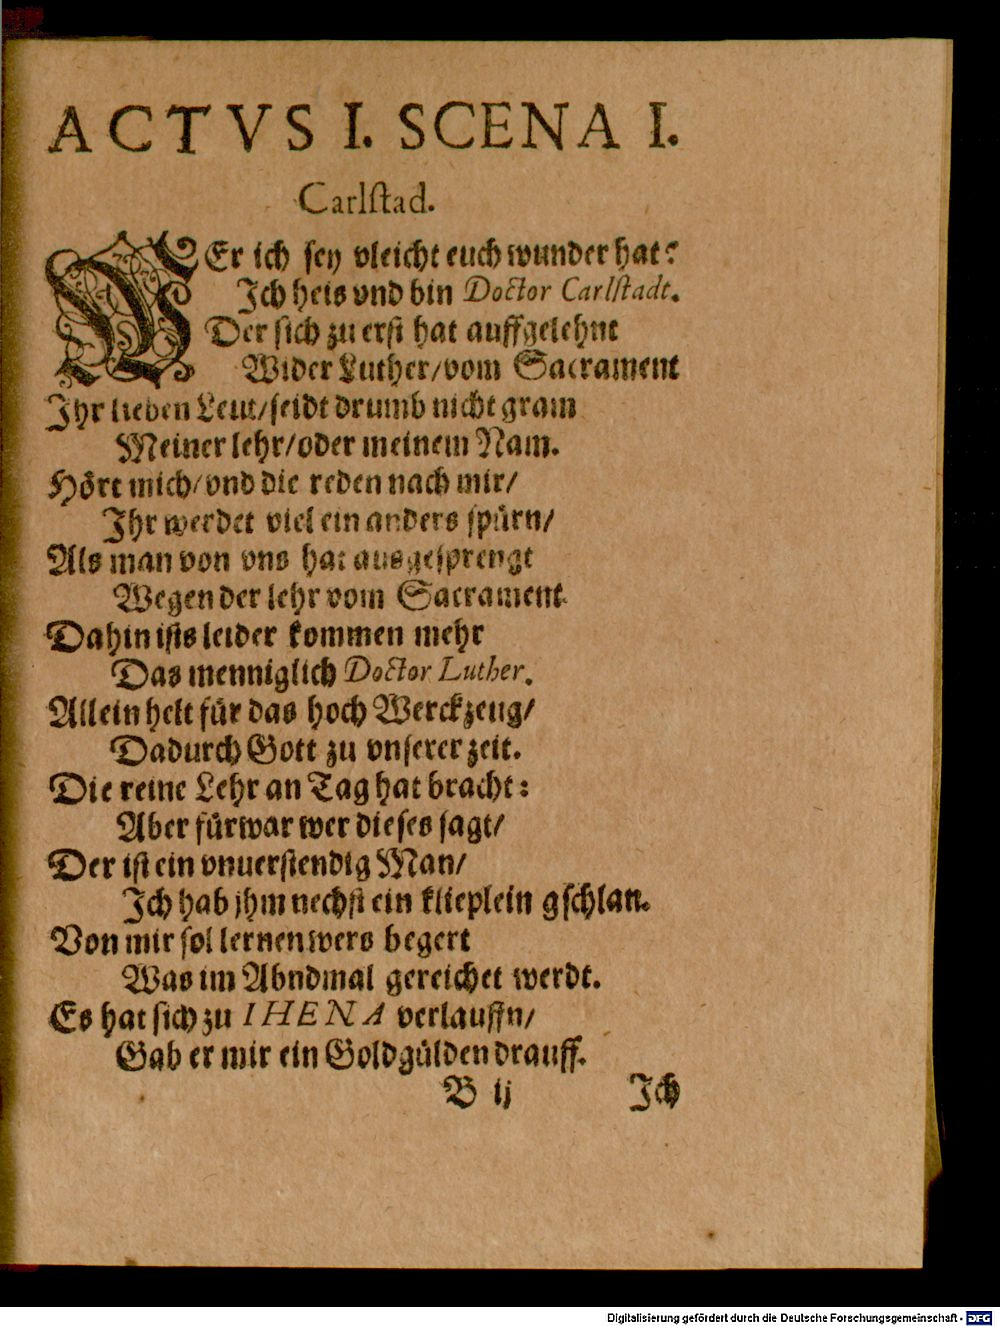 ACTVS I. SCENA I.
Carlſtad.
WEr ich ſey vleicht euch wunder hat?
Ich heis vnd bin Doctor Carlſtadt.
Der ſich zu erſt hat auffgelehnt
Wider Luther/vom Sacrament
Ihr lieben Leut/ſeidt drumb nicht gram
Meiner lehr/oder meinem Nam.
Hört mich/vnd die reden nach mir/
Ihr werdet viel ein anders ſpürn/
Als man von vns hat ausgeſprengt
Wegen der lehr vom Sacrament
Dahin iſts leider kommen mehr
Das menniglich Doctor Luther.
Allein helt für das hoch Werckzeug/
Dadurch Gott zu vnſerer zeit.
Die reine Lehr an Tag hat bracht:
Aber fürwar wer dieſes ſagt/
Der iſt ein vnuerſtendig Man/
Ich hab jhm nechſt ein klieplein gſchlan.
Von mir ſol lernen wers begert
Was im Abndmal gereichet werdt.
Es hat ſich zu IHENA verlauffn/
Gab er mir ein Goldgülden drauff.
B ij Ich
Digitalisierung gefördert durch die Deutsche Forschungsgemeinschaft - DFG